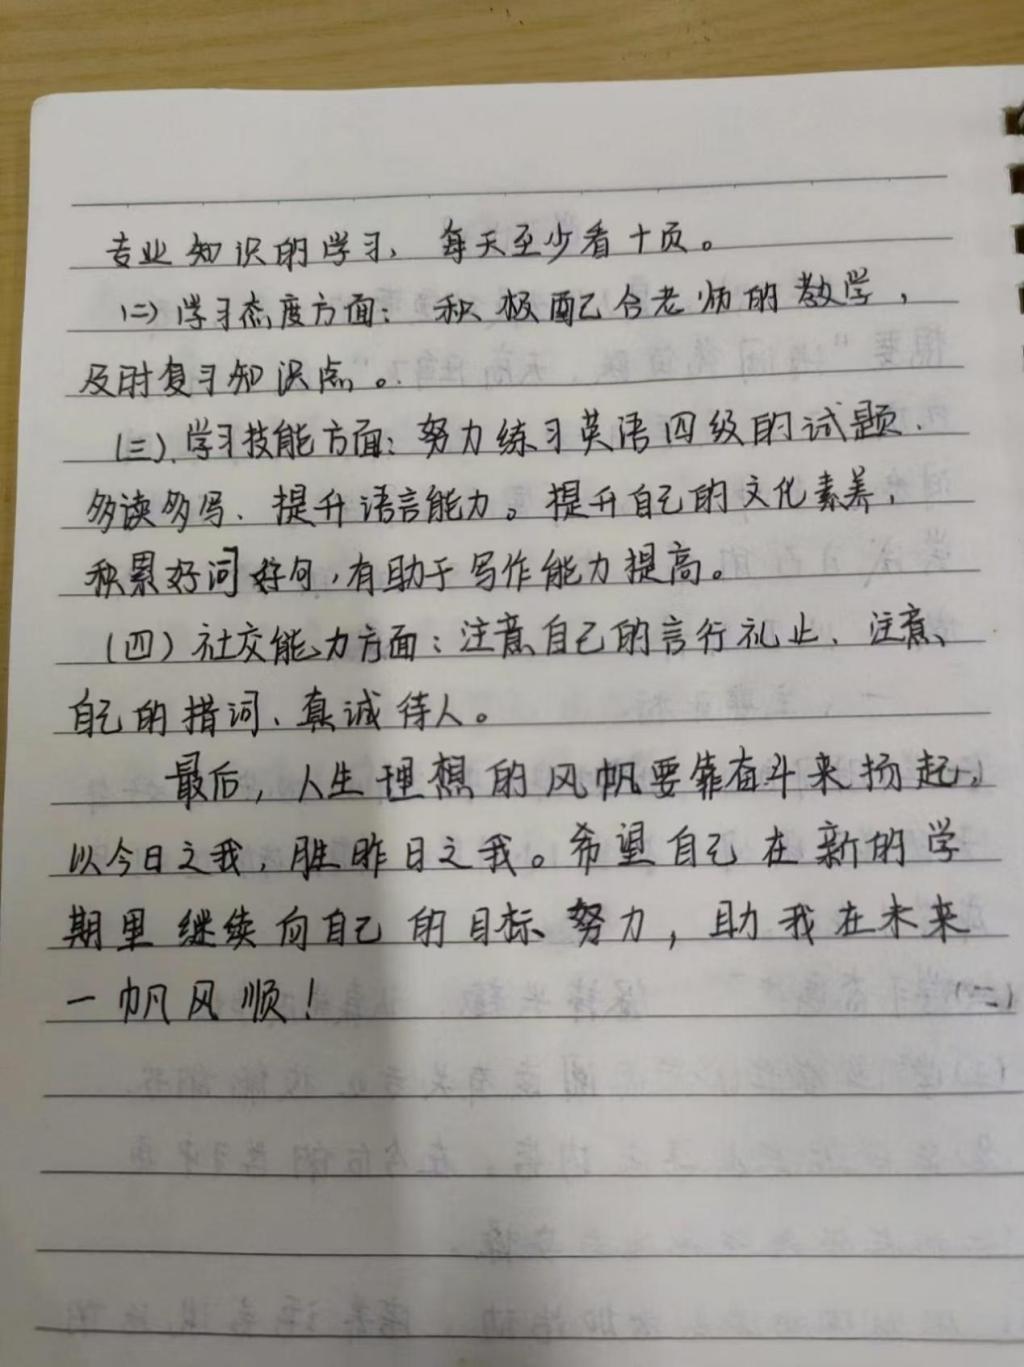 专业知识的学习，每天至少看十页。
(二)学习态度方面：积极配合老师的教学，
及时复习知识点。
(三)、学习技能方面：努力练习英语四级的试题.
多读多写、提升语言能力。提升自己的文化素养，
积累好词好句，有助于写作能力提高。
(四)社交能力方面：注意自己的言行礼止、注意
自己的措词、真诚待人。
最后，人生理想的风帆要靠奋斗来扬起。
以今日之我，胜昨日之我。希望自己在新的学
期里继续向自己的目标努力，助我在未来
一帆风顺！